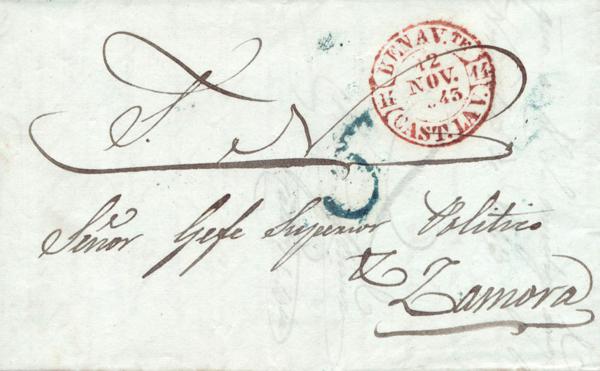 S. N.
BENAV.TE
12
NOV.
1843
14 14
CAST. LA V.
5
Señor Gefe Superior Politico
de
Zamora